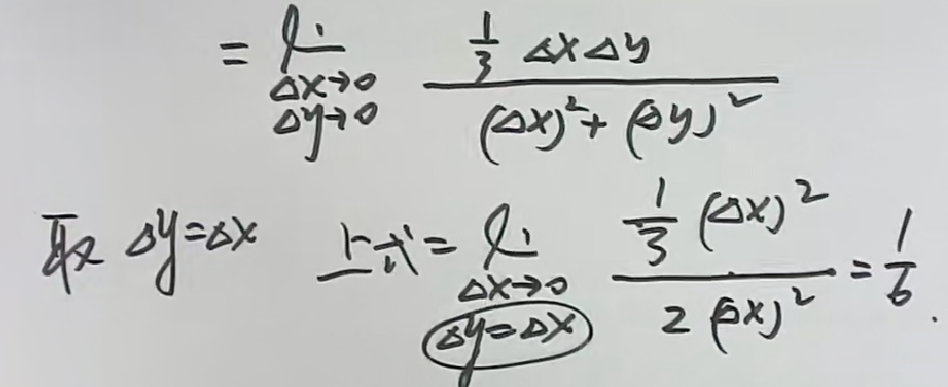 = lim_{Δx→0, Δy→0} \frac{\frac{1}{3} Δx Δy}{(Δx)^2 + (Δy)^2}
取 Δy=Δx 上式 = lim_{Δx→0, Δy=Δx} \frac{\frac{1}{3} (Δx)^2}{2 (Δx)^2} = \frac{1}{6}.